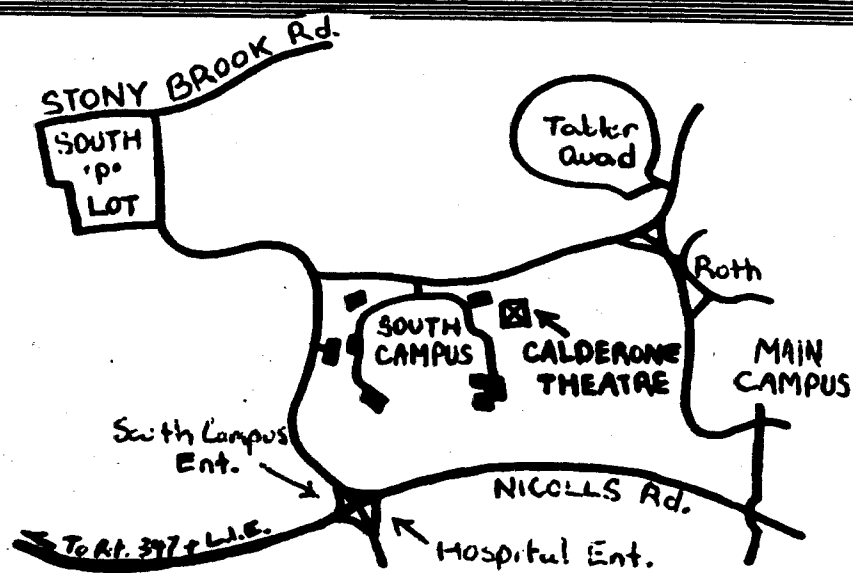 STONY BROOK Rd.
SOUTH
"P"
LOT
Tabler
Quad
Roth
SOUTH
CAMPUS
CALDERONE
THEATRE
MAIN
CAMPUS
South Campus
Ent.
NICOLLS Rd.
To Rt. 347 + L.I.E.
Hospital Ent.